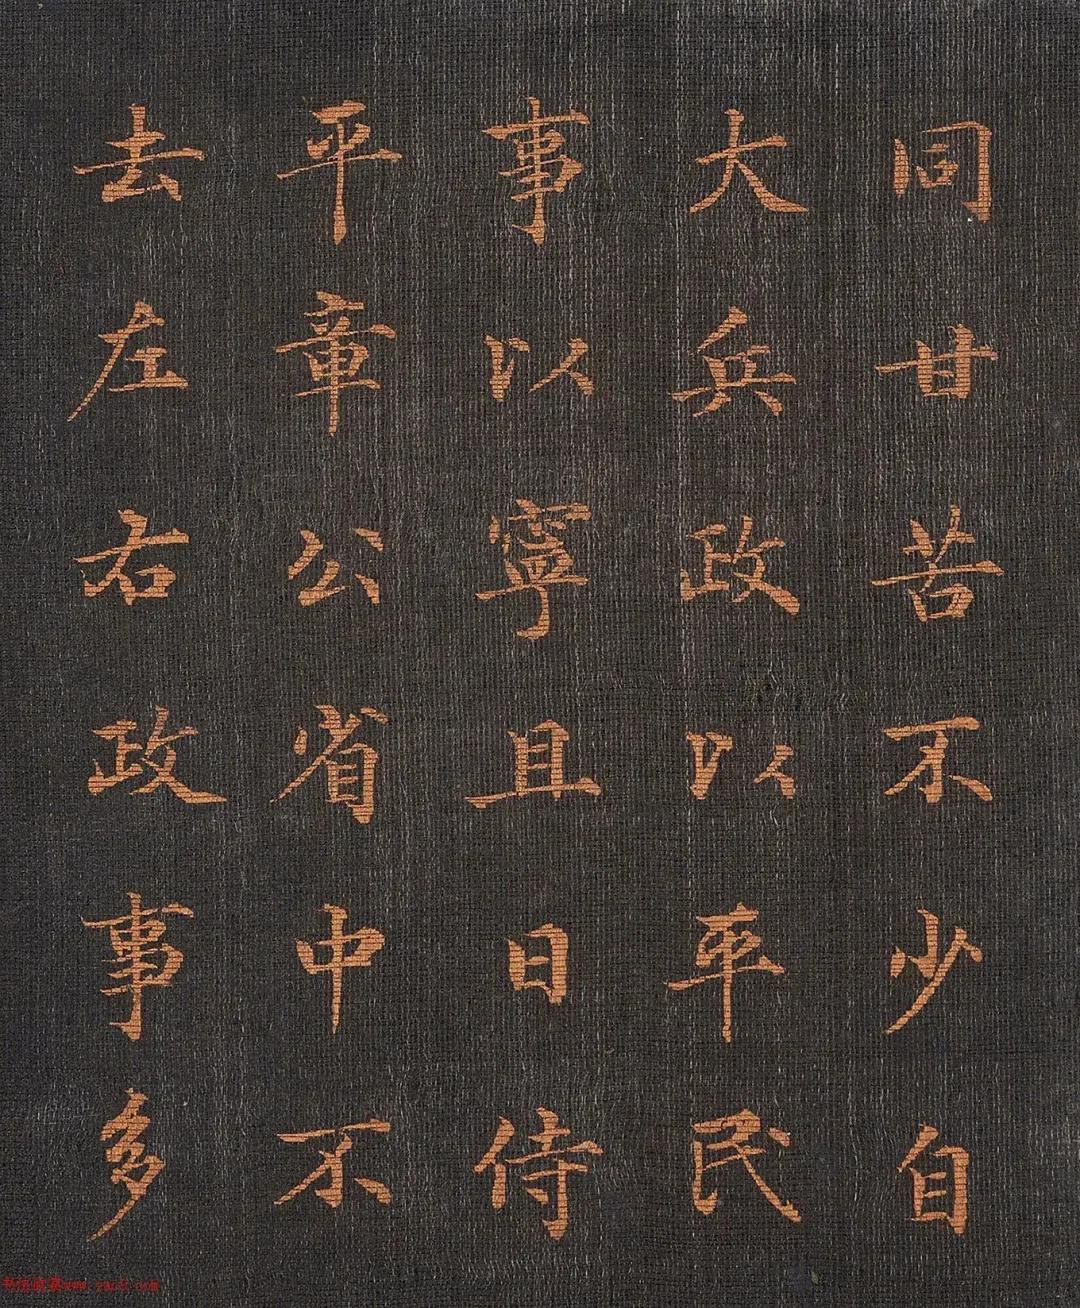 同甘苦不少自
大兵政以平民
事以寧且日侍
平章公省中不
去左右政事多